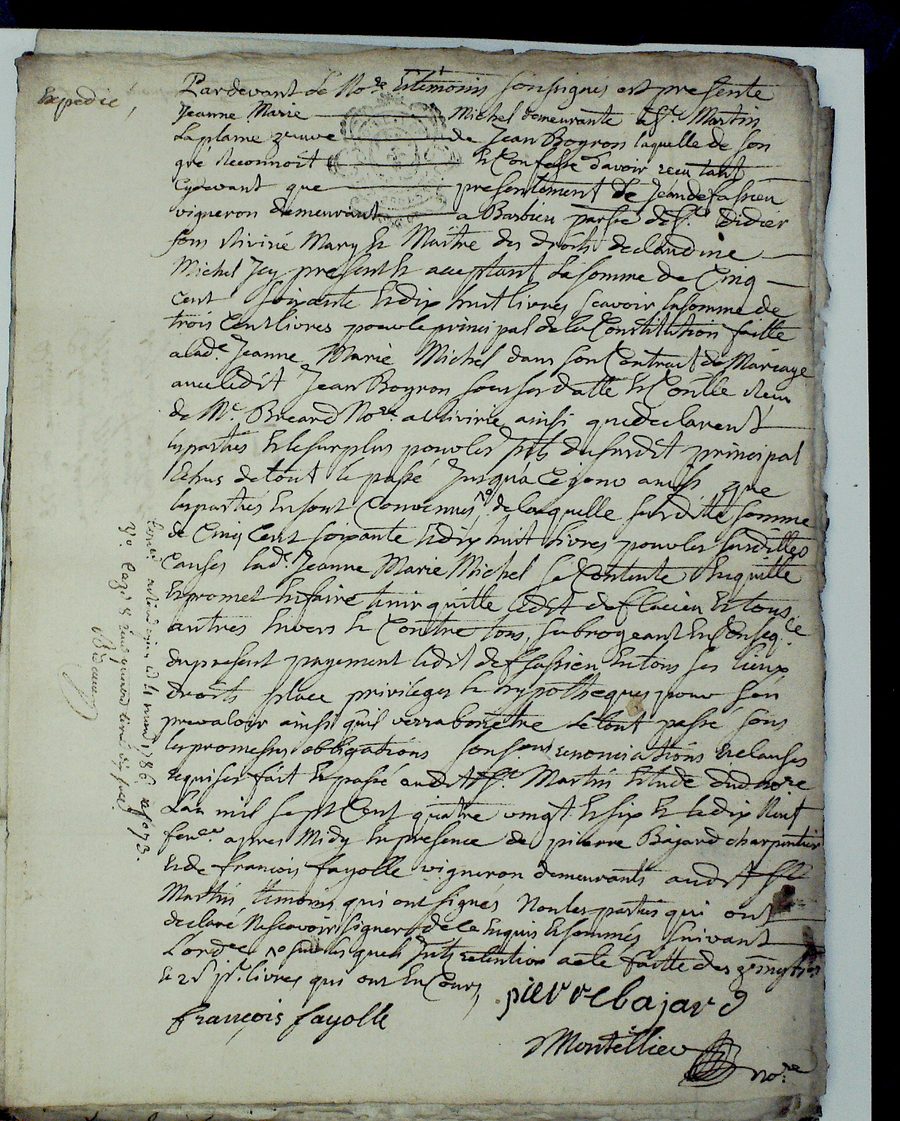 Expedié,
Pardevant Le No.re & temoins sousignés est presente
Jeanne Marie Michel demeurante a St Martin
Laplaine veuve de Jean Bogron laquelle de son
gre Reconnoit Et Confesse d'avoir reçu tant
Cydevant que presentement de Jean deflassieu
vigneron demeurant a Barbieu parsse de St Didier
sous Rivirie Mary Et Maitre des droits de claudine
Michel Icy present Et acceptant La somme de Cinq
cent soixante Et dix huit livres scavoir la somme de
trois Cent livres pour le principal de la Constitution faitte
a lad.e Jeanne Marie Michel dans son Contract de Mariage
avec ledit Jean Bogron sous sa datte Et Contlé Reçu
de Me Breard No.re a Rivirie ainsi que declarent
les parties Et le surplus pour les du susdit principal
Echus de tout le passé Jusqu'a Ce jour ainsi que
les parties En sont Convenues, de laquelle susditte somme
de Cinq Cent soixante Et dix huit livres pour les susdittes
Causes lad.e Jeanne Marie Michel se Contente En quitte
Et promet En faire tenir quitte ledit deflassieu Et tous
autres Envers Et Contre tous, subrogeant En Conseq.ce
du present payement ledit deflassieu En tous ses lieux
droits place privileges Et hypotheques pour s'en
prevaloir ainsi qu'il verra bon être Le tout passé sous
les promesses obligations renonciations Et clauses
requises fait Et passé audit St Martin Etude dud. No.re
L'an mil sept Cent quatre vingt Et six Et le dix Neuf
fevr. apres Midy En presence de pierre Bajard charpentier
Et de francois fayolle vigneron demeurants audit St
Martin, temoins qui ont signés Non les parties qui ont
declaré Ne scavoir signer de ce Enquis Et sommés suivant
L'ord.ce sur lesquels retention a eté faitte des
livres qui ont En Cours,
pierre bajard
françois fayolle
Montellier
no.re
1786